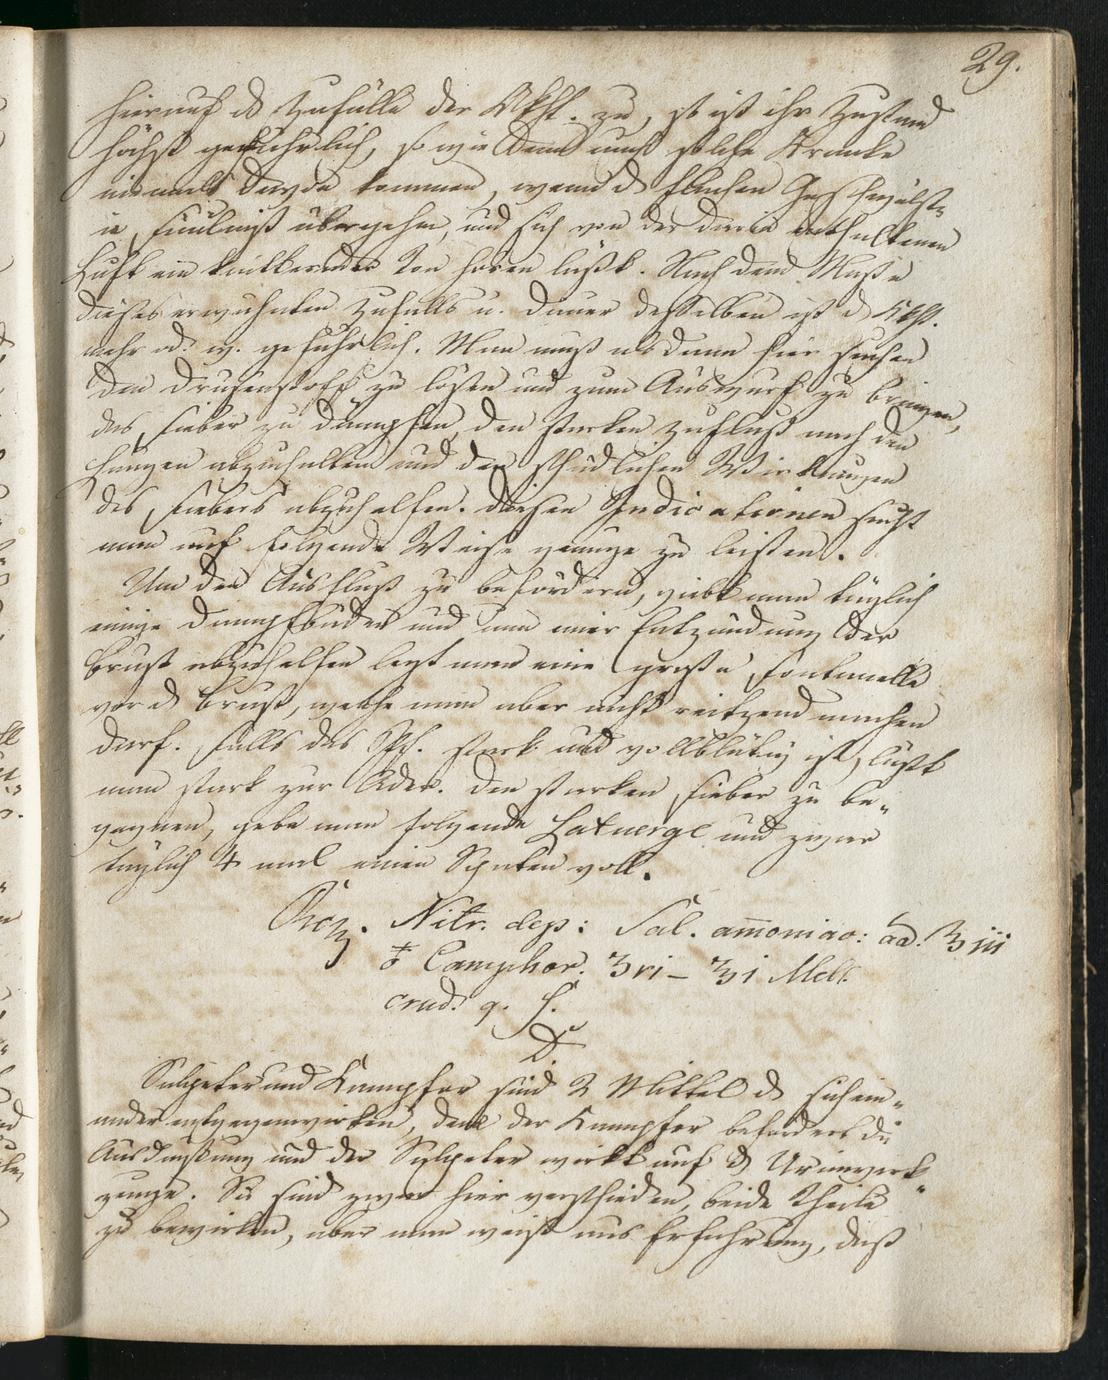 29.
hierauf d Zufälle der Kkht. zu, so ist ihr Zustand
höchst gefährlich, so wie denn auch solche Kranke
niemals davon kommen, wenn d flachen Geschwülste
in Fäulniß übergehen, und sich von der darin enthaltenen
Luft ein knitterndes Ton hören läßt. Nach dem Maße
dieses erwähnten Zufalls u. Dauer desselben ist d Kkht.
mehr od. w. gefährlich. Man muß alsdann hier suchen
den Drusenstoff zu lösen und zum Auswurf zu bringen,
das Fieber zu dämpfen, den starken Zufluß nach den
Lungen abzuhalten und den schädlichen Wirkungen
des Fiebers abzuhelfen. Diesen Indicationen sucht
man auf folgende Weise genüge zu leisten.
Um den Ausfluß zu befördern, giebt man täglich
einige Dampfbäder und um einer Entzündung der
Brust abzuhelfen legt man eine große Fontanelle
vor d Brust, welche man aber nicht reitzend machen
darf. Falls das Pfd. stark und vollblütig ist, läßt
man stark zur Ader. Den starken Fieber zu be-
gegnen, gebe man folgende Latwerge und zwar
täglich 4 mal einen Spaten voll.
Rcp. Nitr. dep: Sal. amoniac: aa. ℥ iii
Camphor. ʒvi – ℥i Mell.
crud. q. S.
D
Salpeter und Kampfer sind 2 Mittel d sich ein-
ander entgegenwirken, denn der Kampfer befördert die
Ausdünstung und der Salpeter wirkt auf d Urinwerk-
zeuge. Sie sind zwar hier verschieden, beide Theile
zu bewirken, aber man weiß aus Erfahrung, daß